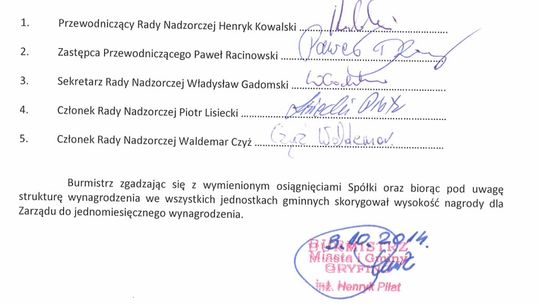 1. Przewodniczący Rady Nadzorczej Henryk Kowalski
2. Zastępca Przewodniczącego Paweł Racinowski
Paweł
3. Sekretarz Rady Nadzorczej Władysław Gadomski
4. Członek Rady Nadzorczej Piotr Lisiecki
Lisiecki Piotr
5. Członek Rady Nadzorczej Waldemar Czyż
Czyż Waldemar
Burmistrz zgadzając się z wymienionym osiągnięciami Spółki oraz biorąc pod uwagę
strukturę wynagrodzenia we wszystkich jednostkach gminnych skorygował wysokość nagrody dla
Zarządu do jednomiesięcznego wynagrodzenia.
3.10.2014.
BURMISTRZ
Miasta i Gminy
GRYFINO
inż. Henryk Piłat